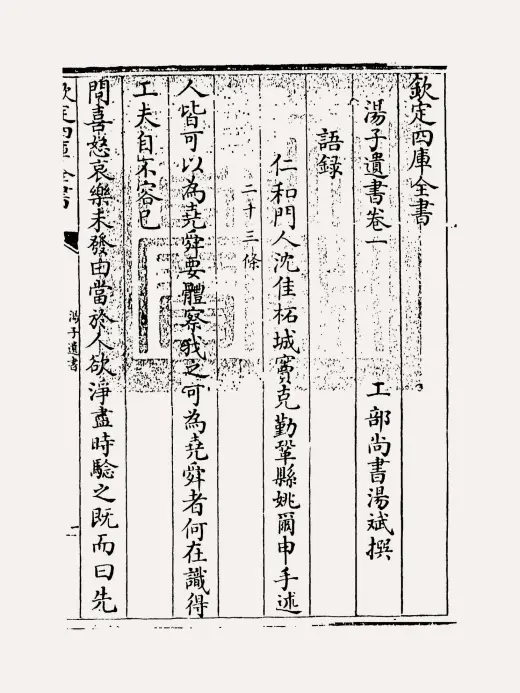 欽定四庫全書
湯子遺書卷一
工部尚書湯斌撰
語録
仁和門人沈佳柘城竇克勤鞏縣姚爾申手述
二十三條
人皆可以為堯舜要體察我之可為堯舜者何在識得
工夫自不容已
問喜怒哀樂未發曰當於人欲淨盡時驗之既而曰先
欽定四庫全書
湯子遺書
一